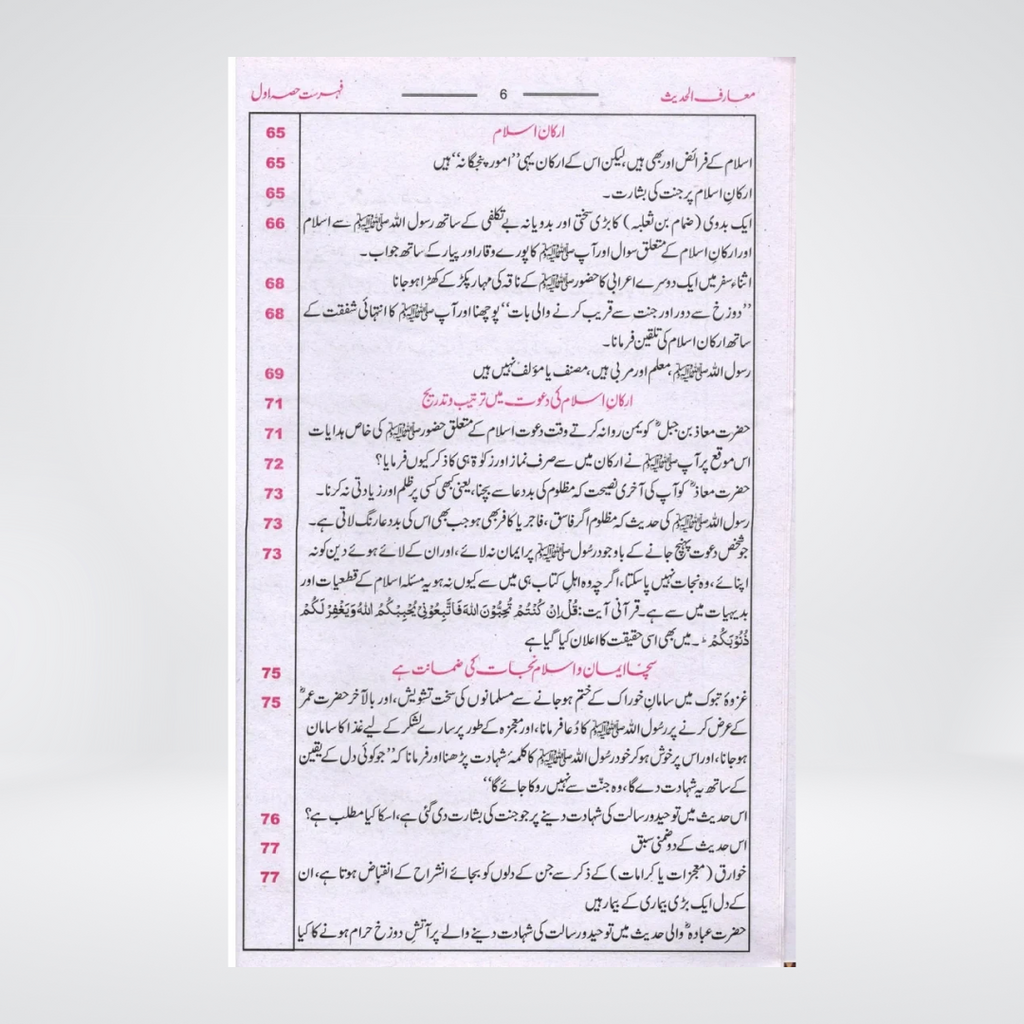 معارف الحدیث 6 فہرست حصہ اول
ارکان اسلام 65
اسلام کے فرائض اور بھی ہیں، لیکن اس کے ارکان یہی ”امور پنجگانہ“ ہیں 65
ارکانِ اسلام پر جنت کی بشارت۔ 65
ایک بدوی (ضمام بن ثعلبہ) کا بڑی سختی اور بدویانہ بے تکلفی کے ساتھ رسول اللہ ﷺ سے اسلام 66
اور ارکانِ اسلام کے متعلق سوال اور آپ ﷺ کا پورے وقار اور پیار کے ساتھ جواب۔
اثناء سفر میں ایک دوسرے اعرابی کا حضور ﷺ کے ناقہ کی مہار پکڑ کے کھڑا ہو جانا 68
”دوزخ سے دور اور جنت سے قریب کرنے والی بات“ پوچھنا اور آپ ﷺ کا انتہائی شفقت کے 68
ساتھ ارکان اسلام کی تلقین فرمانا۔
رسول اللہ ﷺ، معلم اور مربی ہیں، مصنف یا مؤلف نہیں ہیں 69
ارکانِ اسلام کی دعوت میں ترتیب و تدریج 71
حضرت معاذ بن جبلؓ کو یمن روانہ کرتے وقت دعوت اسلام کے متعلق حضور ﷺ کی خاص ہدایات 71
اس موقع پر آپ ﷺ نے ارکان میں سے صرف نماز اور زکوٰۃ ہی کا ذکر کیوں فرمایا؟ 72
حضرت معاذؓ کو آپ کی آخری نصیحت کہ مظلوم کی بددعا سے بچنا، یعنی کبھی کسی پر ظلم اور زیادتی نہ کرنا۔ 73
رسول اللہ ﷺ کی حدیث کہ مظلوم اگر فاسق، فاجر یا کافر بھی ہو جب بھی اس کی بددعا رنگ لاتی ہے۔ 73
جو شخص دعوت پہنچ جانے کے باوجود رسُول ﷺ پر ایمان نہ لائے، اور ان کے لائے ہوئے دین کو نہ 73
اپنائے، وہ نجات نہیں پاسکتا، اگرچہ وہ اہلِ کتاب ہی میں سے کیوں نہ ہو یہ مسئلہ اسلام کے قطعیات اور
بدیہیات میں سے ہے۔ قرآنی آیت: قُلْ اِنْ كُنْتُمْ تُحِبُّوْنَ اللهَ فَاتَّبِعُوْنِیْ یُحْبِبْكُمُ اللهُ وَیَغْفِرْ لَكُمْ
ذُنُوْبَكُمْ ط۔ میں بھی اسی حقیقت کا اعلان کیا گیا ہے
سچّا ایمان و اسلام نجات کی ضمانت ہے 75
غزوۂ تبوک میں سامانِ خوراک کے ختم ہو جانے سے مسلمانوں کی سخت تشویش، اور بالآخر حضرت عمرؓ 75
کے عرض کرنے پر رسُول اللہ ﷺ کا دُعا فرمانا، اور معجزہ کے طور پر سارے لشکر کے لیے غذا کا سامان
ہو جانا، اور اس پر خوش ہو کر خود رسُول اللہ ﷺ کا کلمۂ شہادت پڑھنا اور فرمانا کہ ”جو کوئی دل کے یقین
کے ساتھ یہ شہادت دے گا، وہ جنّت سے نہیں روکا جائے گا“
اس حدیث میں توحید و رسالت کی شہادت دینے پر جو جنت کی بشارت دی گئی ہے، اسکا کیا مطلب ہے؟ 76
اس حدیث کے دو ضمنی سبق 77
خوارق (معجزات یا کرامات) کے ذکر سے جن کے دلوں کو بجائے انشراح کے انقباض ہوتا ہے، ان 77
کے دل ایک بڑی بیماری کے بیمار ہیں
حضرت عبادہؓ والی حدیث میں توحید و رسالت کی شہادت دینے والے پر آتشِ دوزخ حرام ہونے کا کیا